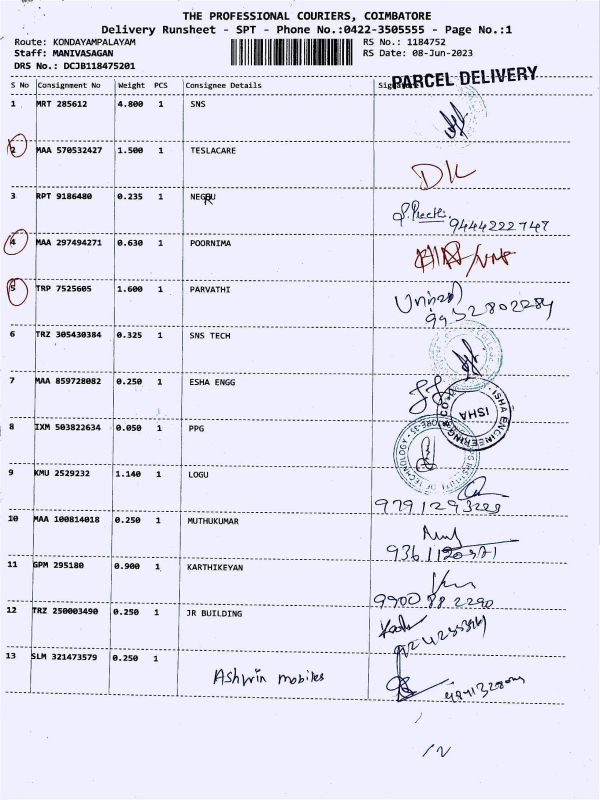 THE PROFESSIONAL COURIERS, COIMBATORE
Delivery Runsheet - SPT - Phone No.:0422-3505555 - Page No.:1
Route: KONDAYAMPALAYAM RS No.: 1184752
Staff: MANIVASAGAN RS Date: 08-Jun-2023
DRS No.: DCJB118475201
PARCEL DELIVERY
S No Consignment No Weight PCS Consignee Details Signature
1 MRT 285612 4.800 1 SNS
2 MAA 570532427 1.500 1 TESLACARE
DK
3 RPT 9186480 0.235 1
9444222747
4 MAA 297494271 0.630 1 POORNIMA
5 TRP 7525605 1.600 1 PARVATHI
9952802284
6 TRZ 305430384 0.325 1 SNS TECH
7 MAA 859728082 0.250 1 ESHA ENGG
ISHA ENGINEERING & CO
ISHA
8 IXM 503822634 0.050 1 PPG
OF TECHNOLOGY
9 KMU 2529232 1.140 1 LOGU
9791293223
10 MAA 100814018 0.250 1 MUTHUKUMAR
11 GPM 295180 0.900 1 KARTHIKEYAN
9900 88 2290
12 TRZ 250003490 0.250 1 JR BUILDING
13 SLM 321473579 0.250 1
Ashwin mobiles